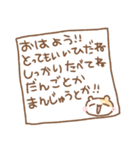 おはよう!!
とってもいいひだね
しっかりたべてね
だんごとか
まんじゅうとか!!